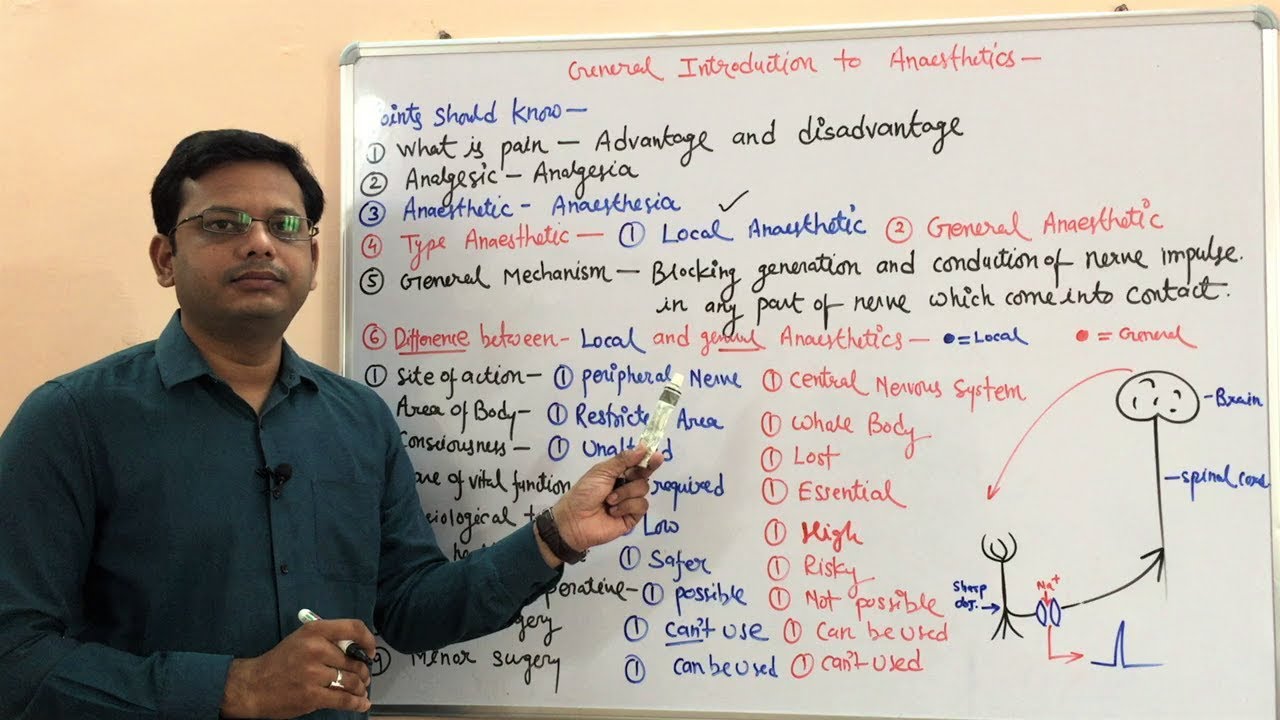 General Introduction to Anaesthetics—
oints should know—
① what is pain — Advantage and disadvantage
② Analgesic - Analgesia
③ Anaesthetic - Anaesthesia ✓
④ Type Anaesthetic — ① Local Anaesthetic ② General Anaesthetic
⑤ General Mechanism — Blocking generation and conduction of nerve impulse.
in any part of nerve which come into contact.
⑥ Difference between- Local and general Anaesthetics— •=Local •=General
① site of action— ① peripheral Nerve ① Central Nervous System
Area of Body— ① Area ① Whole Body
Consciousness — ① ① Lost
of vital function required ① Essential
Low ① High
① Safer ① Risky
perative— ① possible ① Not possible
gery ① can't use ① Can be used
⑨ Minor surgery ① can be used ① can't used
Brain
spinal cord
Sharp
obj.
Na+